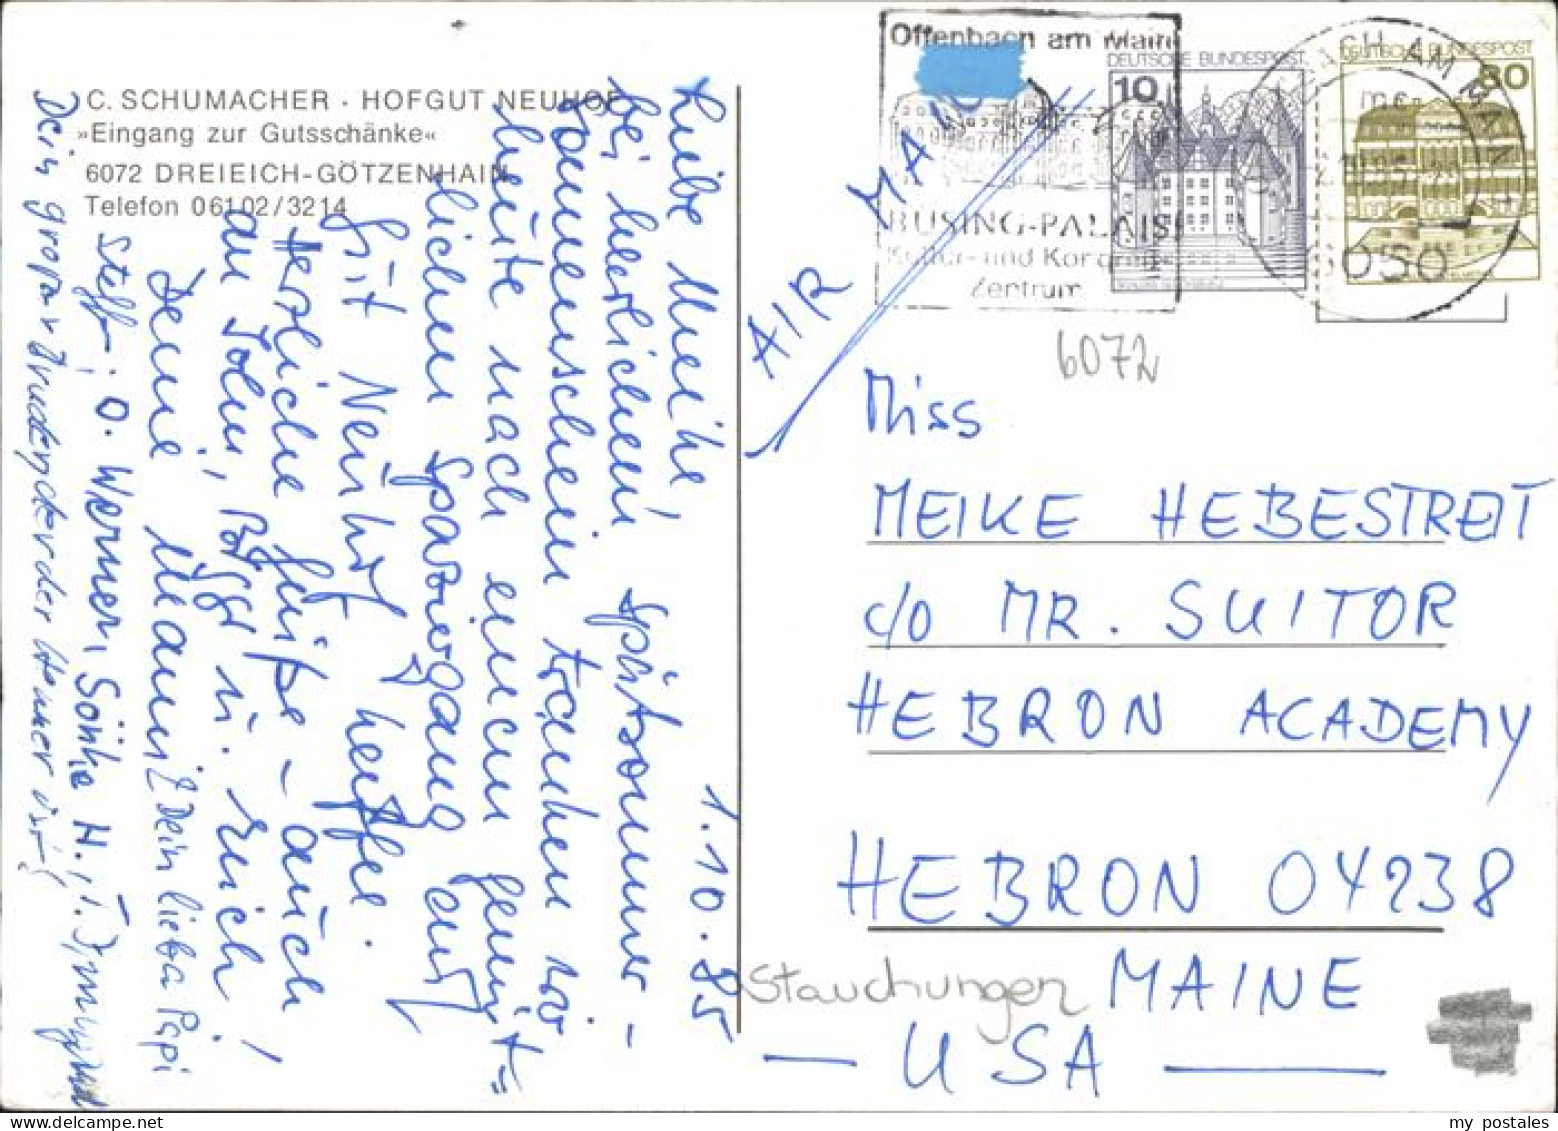 C. SCHUMACHER · HOFGUT NEUHOF
»Eingang zur Gutsschänke«
6072 DREIEICH-GÖTZENHAIN
Telefon 06102/3214
1.10.85
Liebe Meike,
bei herrlichem Spätsommer-
sonnenschein tranken wir
heute nach einem gemüt=
lichen Spaziergang auf
Gut Neuhof Kaffee.
Herzliche Grüße – auch
an John, Peggy u. Erich!
Deine Mami Dein lieber Papi
Steffi, O. Werner, Sönke H.,
Dein großer Bruder der der Henner ist!
AIR MAIL
Offenbach am Main
BÜSING-PALAIS
Kultur- und Kongreß-
Zentrum
DEUTSCHE BUNDESPOST
10
DEUTSCHE BUNDESPOST
80
6050
6072
Miss
MEIKE HEBESTREIT
c/o MR. SUITOR
HEBRON ACADEMY
HEBRON 04238
Stauchungen
MAINE
— USA —
my postales